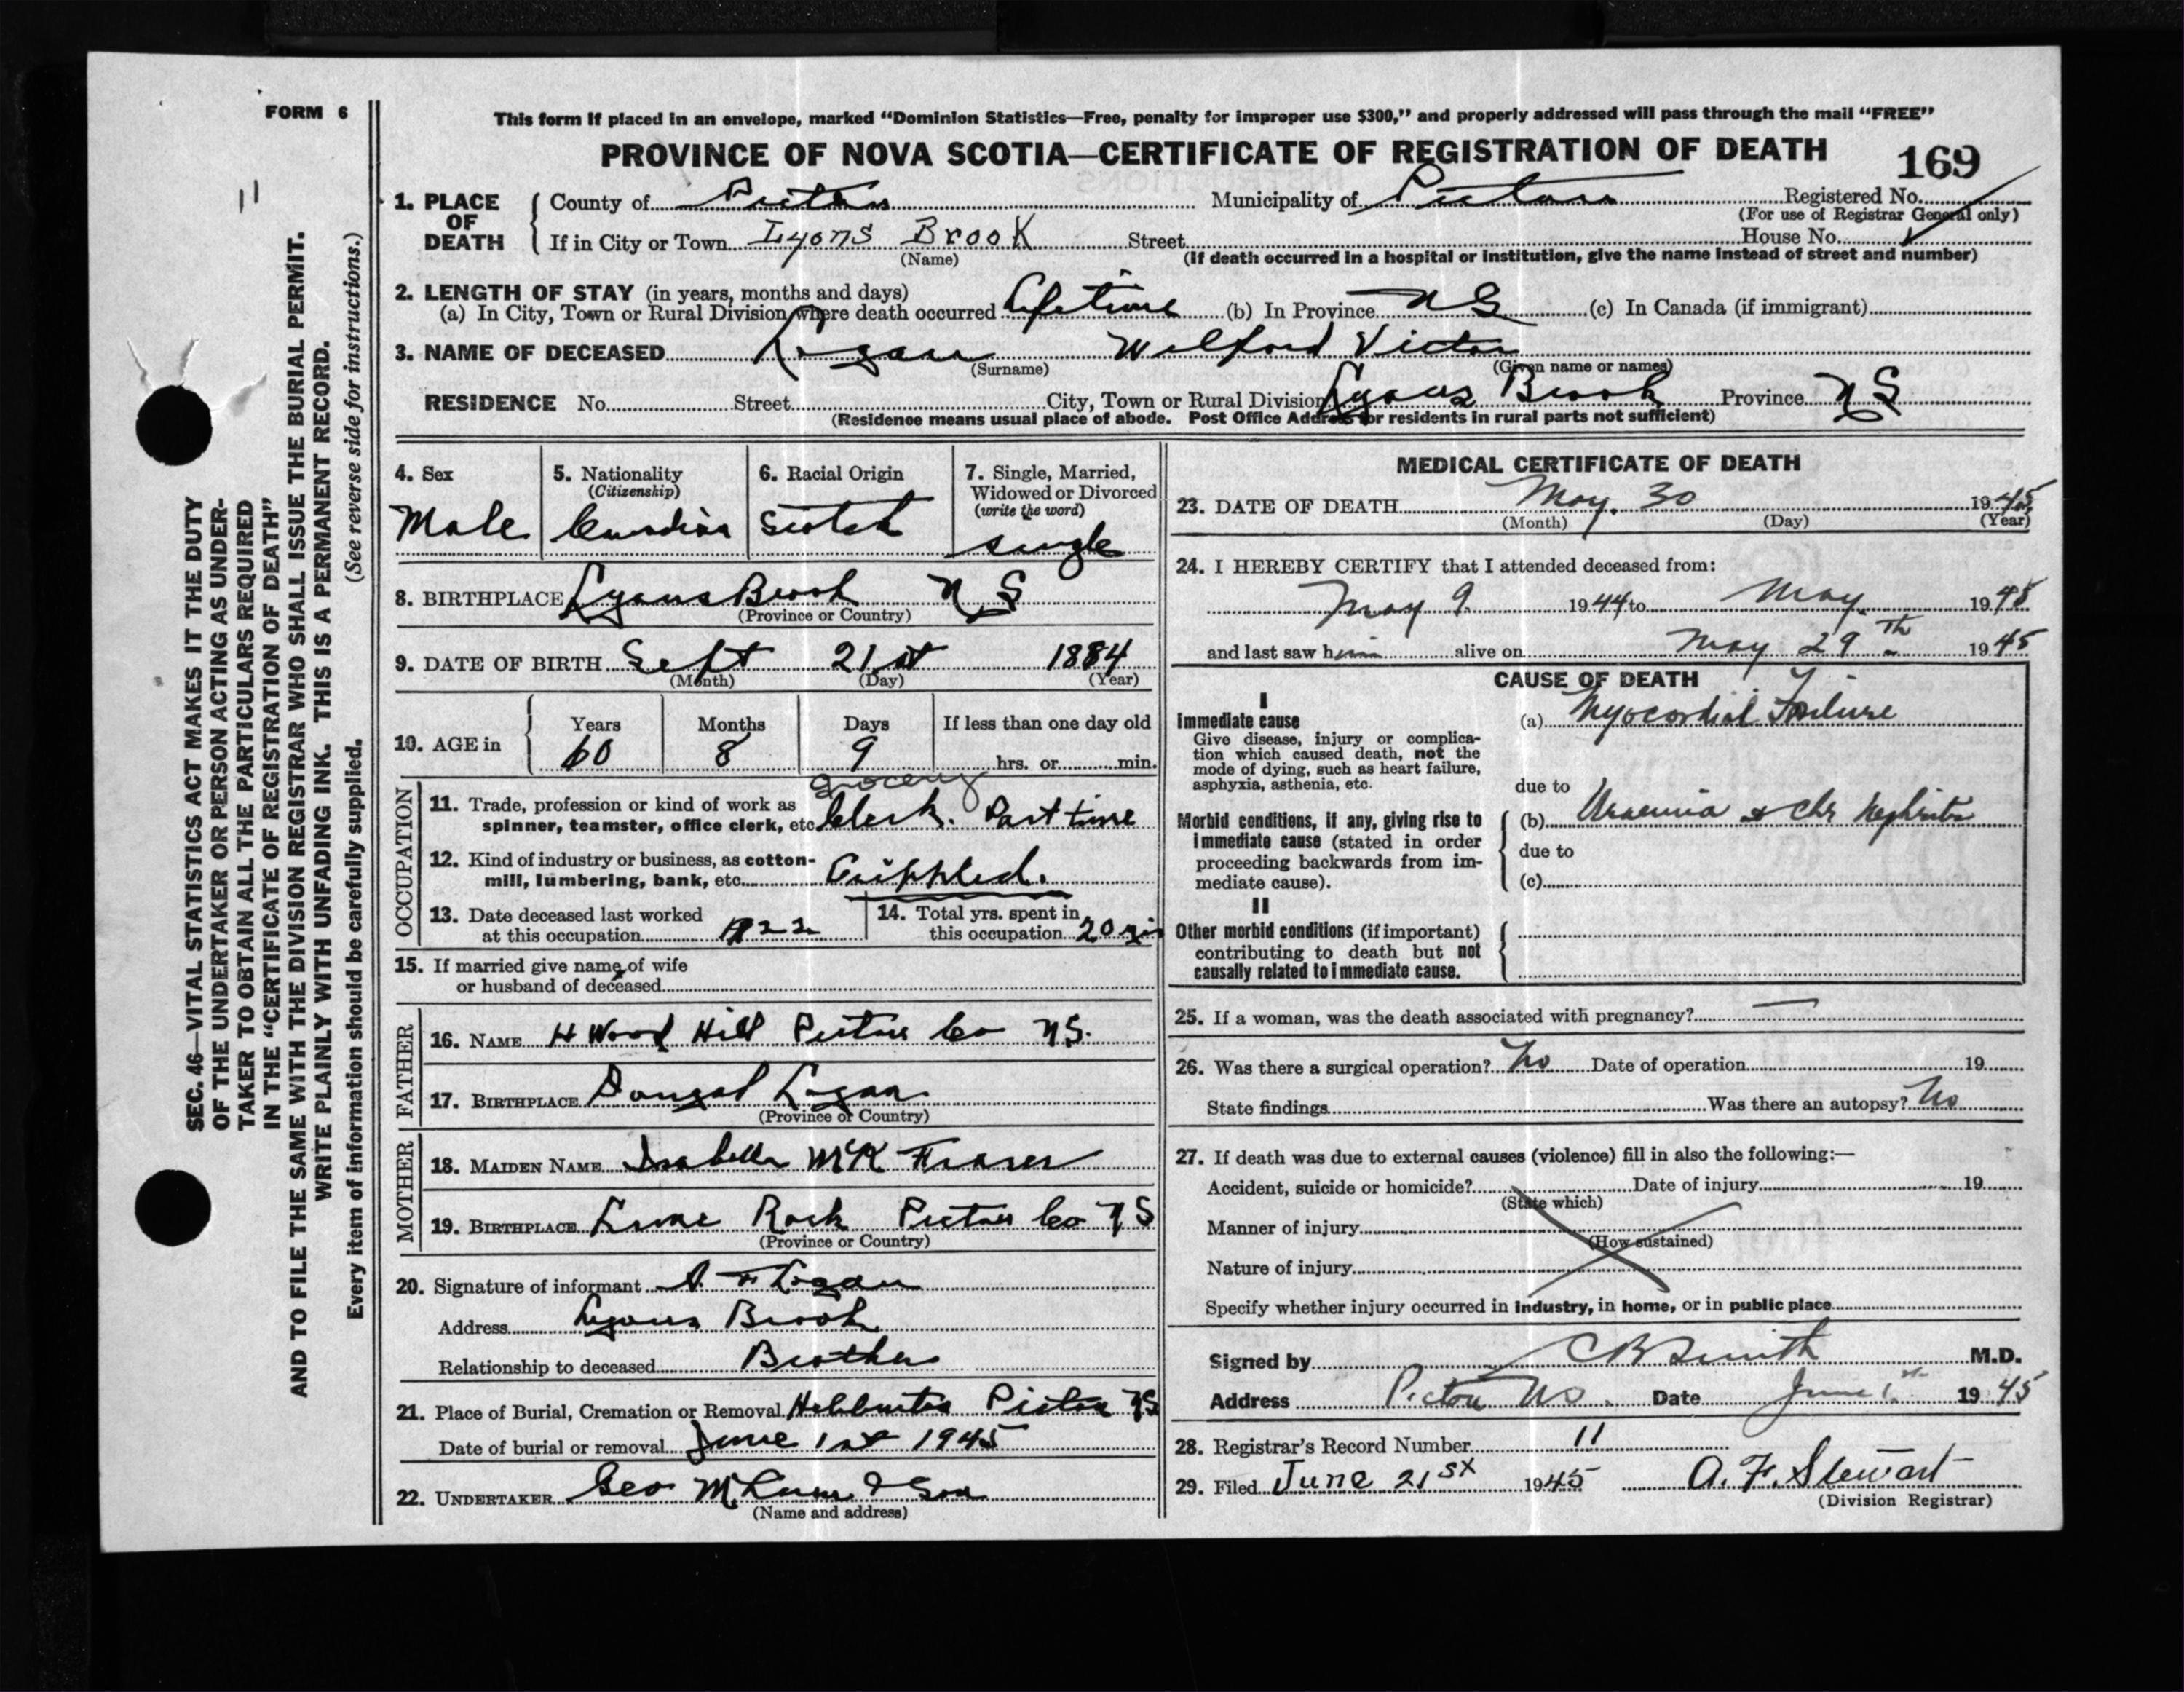 FORM 6
11
SEC. 46—VITAL STATISTICS ACT MAKES IT THE DUTY
OF THE UNDERTAKER OR PERSON ACTING AS UNDER-
TAKER TO OBTAIN ALL THE PARTICULARS REQUIRED
IN THE "CERTIFICATE OF REGISTRATION OF DEATH"
AND TO FILE THE SAME WITH THE DIVISION REGISTRAR WHO SHALL ISSUE THE BURIAL PERMIT.
WRITE PLAINLY WITH UNFADING INK. THIS IS A PERMANENT RECORD.
Every item of information should be carefully supplied. (See reverse side for instructions.)
This form if placed in an envelope, marked "Dominion Statistics—Free, penalty for improper use $300," and properly addressed will pass through the mail "FREE"
PROVINCE OF NOVA SCOTIA—CERTIFICATE OF REGISTRATION OF DEATH 169
1. PLACE OF DEATH
County of Pictou Municipality of Pictou Registered No.
(For use of Registrar General only)
If in City or Town Lyons Brook Street House No.
(Name) (If death occurred in a hospital or institution, give the name instead of street and number)
2. LENGTH OF STAY (in years, months and days)
(a) In City, Town or Rural Division where death occurred Lifetime (b) In Province NS (c) In Canada (if immigrant)
3. NAME OF DECEASED Logan Welford Victor
(Surname) (Given name or names)
RESIDENCE No. Street City, Town or Rural Division Lyons Brook Province NS
(Residence means usual place of abode. Post Office Address for residents in rural parts not sufficient)
4. Sex
Male
5. Nationality
(Citizenship)
Canadian
6. Racial Origin
Scotch
7. Single, Married,
Widowed or Divorced
(write the word)
single
8. BIRTHPLACE Lyons Brook NS
(Province or Country)
9. DATE OF BIRTH Sept 21st 1884
(Month) (Day) (Year)
10. AGE in
Years Months Days If less than one day old
60 8 9 hrs. or min.
OCCUPATION
grocery
11. Trade, profession or kind of work as
spinner, teamster, office clerk, etc. Clerk. Part time
12. Kind of industry or business, as cotton-
mill, lumbering, bank, etc. Crippled.
13. Date deceased last worked
at this occupation 1922
14. Total yrs. spent in
this occupation 20
15. If married give name of wife
or husband of deceased
FATHER
16. NAME H Wood Hill Pictou Co NS.
17. BIRTHPLACE Dougal Logan
(Province or Country)
MOTHER
18. MAIDEN NAME Isabella McK Fraser
19. BIRTHPLACE Lime Rock Pictou Co NS
(Province or Country)
20. Signature of informant A. F Logan
Address Lyons Brook
Relationship to deceased Brother
21. Place of Burial, Cremation or Removal Pictou NS
Date of burial or removal June 1st 1945
22. UNDERTAKER Geo & Son
(Name and address)
MEDICAL CERTIFICATE OF DEATH
23. DATE OF DEATH May. 30 1945
(Month) (Day) (Year)
24. I HEREBY CERTIFY that I attended deceased from:
May 9. 1944 to May. 1945
and last saw him alive on May 29th 1945
CAUSE OF DEATH
I
Immediate cause
Give disease, injury or complica-
tion which caused death, not the
mode of dying, such as heart failure,
asphyxia, asthenia, etc.
(a) Myocordial Failure
due to
Morbid conditions, if any, giving rise to
immediate cause (stated in order
proceeding backwards from im-
mediate cause).
(b) Uraemia & Chr Nephritis
due to
(c)
II
Other morbid conditions (if important)
contributing to death but not
causally related to immediate cause.
25. If a woman, was the death associated with pregnancy? —
26. Was there a surgical operation? No Date of operation 19
State findings Was there an autopsy? No
27. If death was due to external causes (violence) fill in also the following:—
Accident, suicide or homicide? Date of injury 19
(State which)
Manner of injury
(How sustained)
Nature of injury
Specify whether injury occurred in industry, in home, or in public place
Signed by C B Smith M.D.
Address Pictou NS. Date June 1st 1945
28. Registrar's Record Number 11
29. Filed June 21st 1945 A. F. Stewart
(Division Registrar)